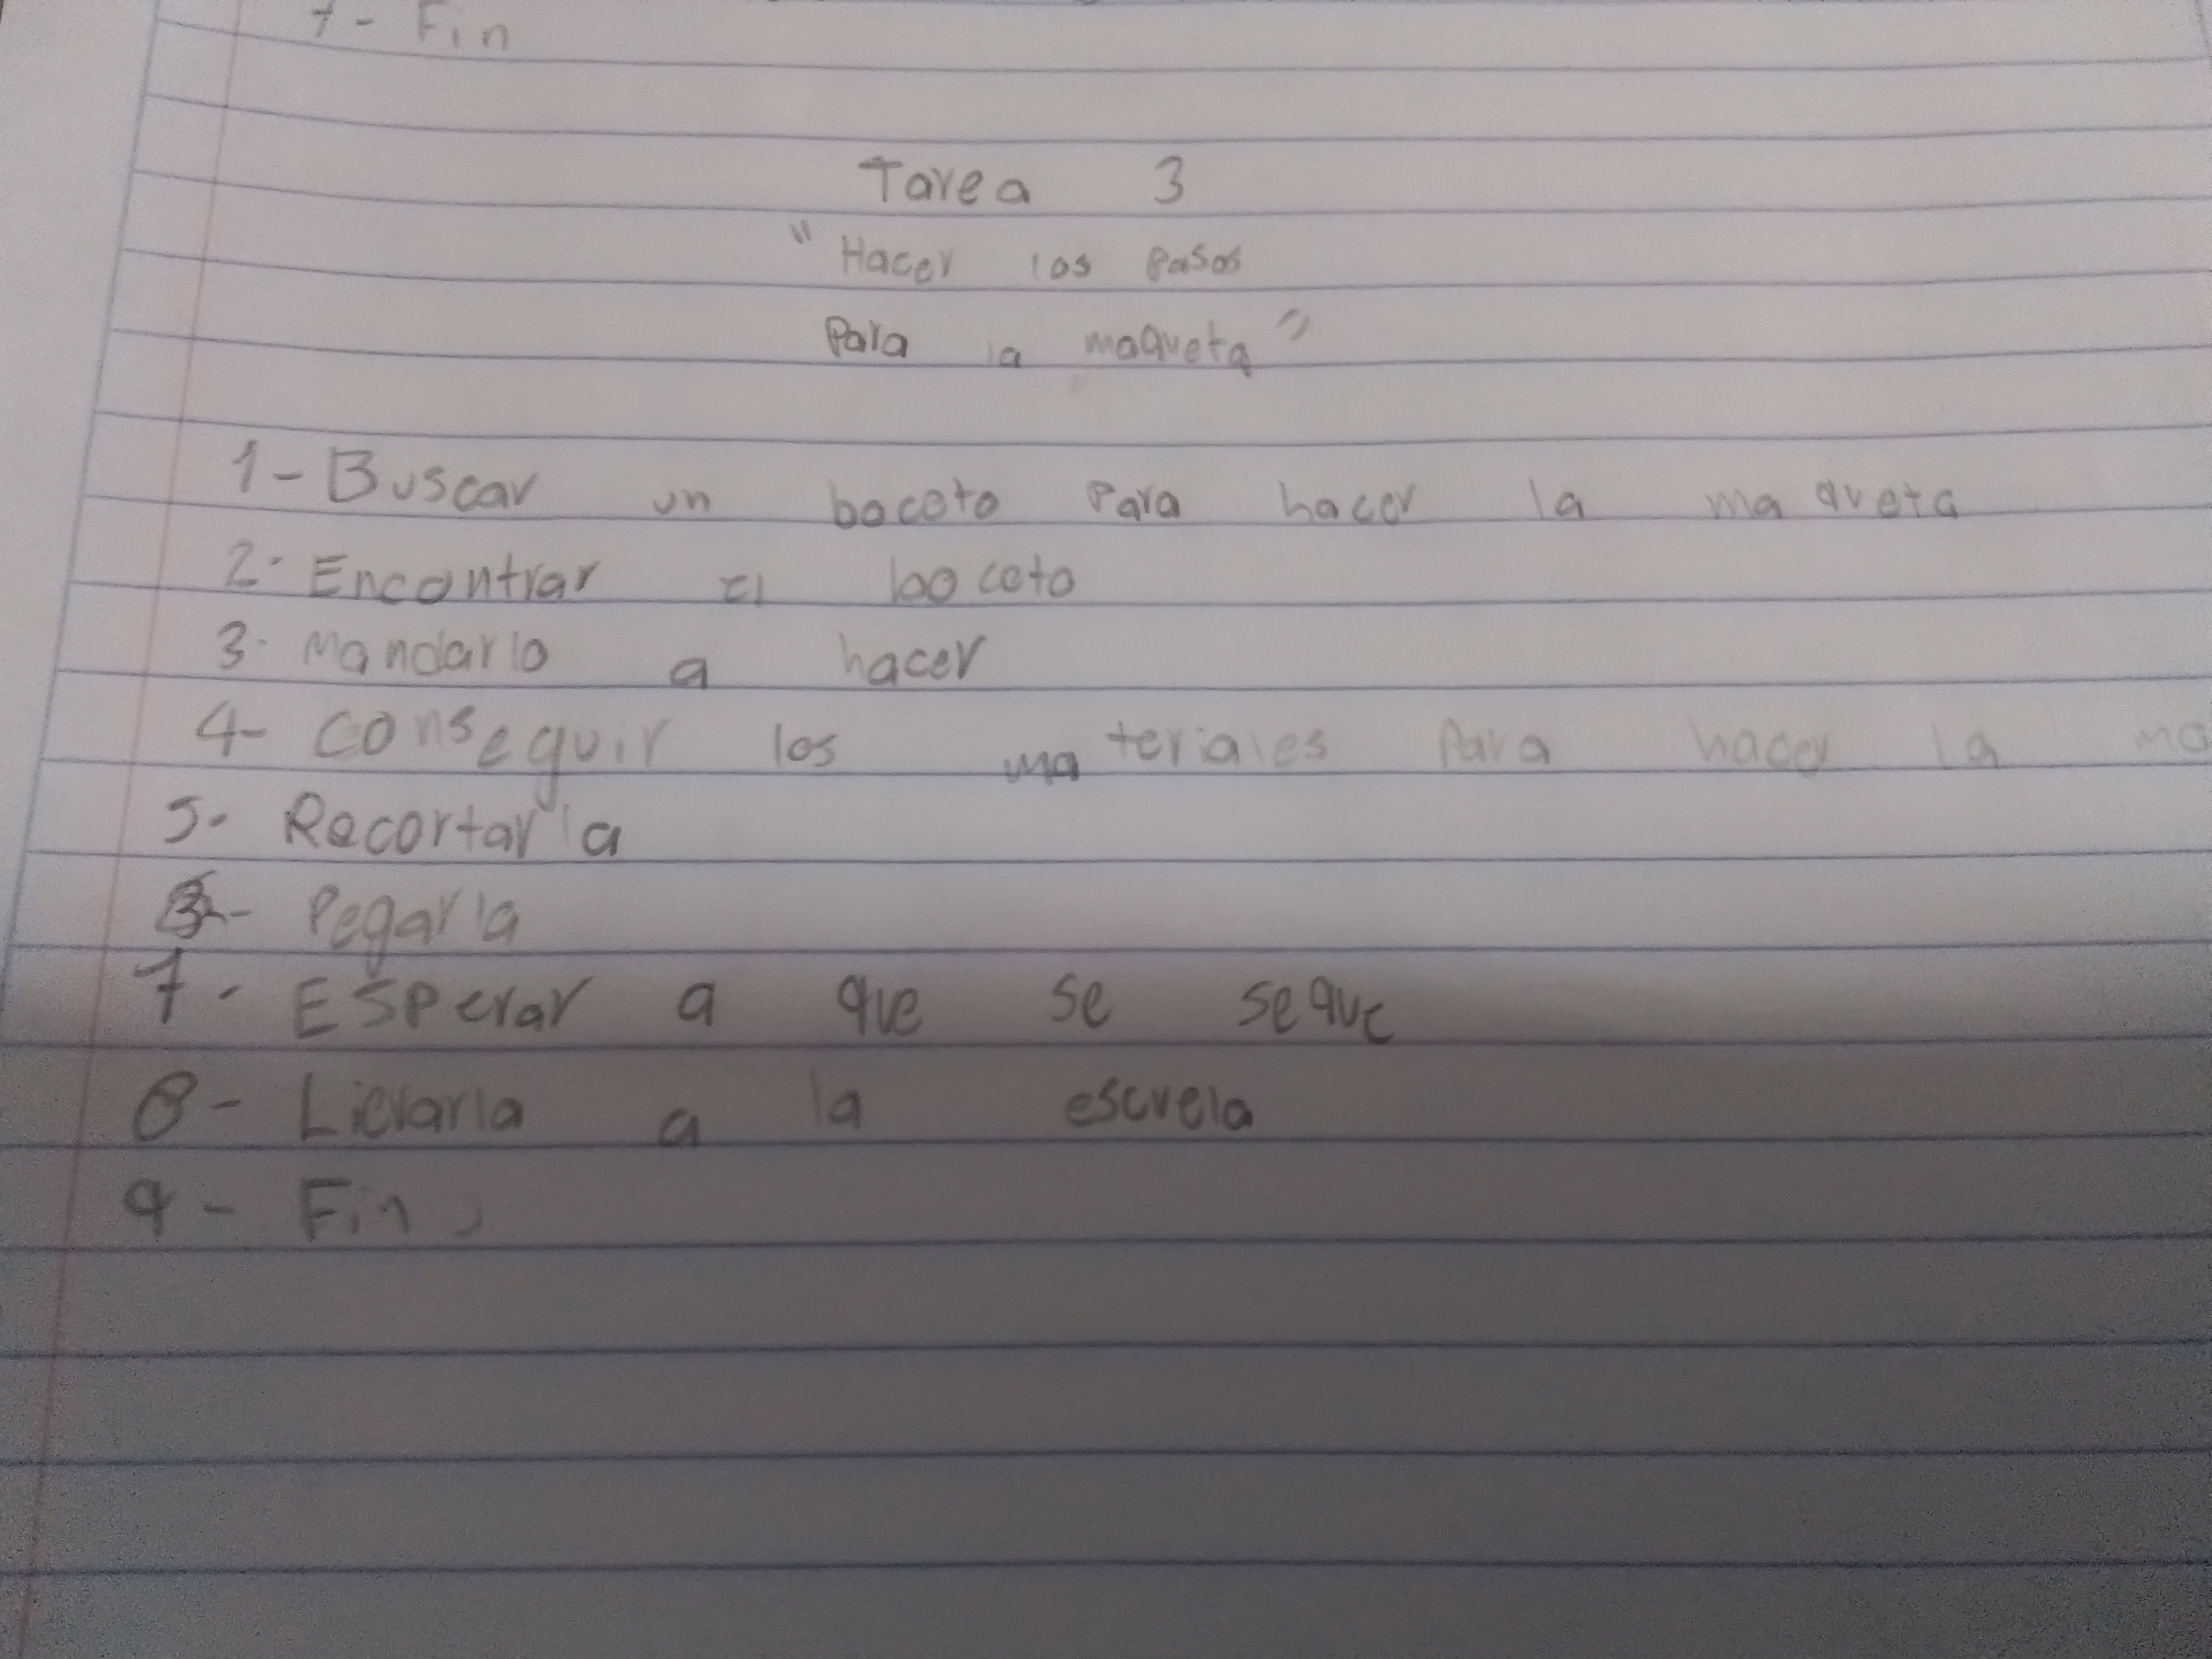 7- Fin
Tarea 3
"Hacer los pasos
Para la maqueta"
1- Buscar un boceto Para hacer la maqueta
2- Encontrar el boceto
3- Mandarlo a hacer
4- Conseguir los materiales Para hacer la ma
5- Recortarla
- Pegarla
7- Esperar a que se seque
8- Llevarla a la escuela
9- Fin